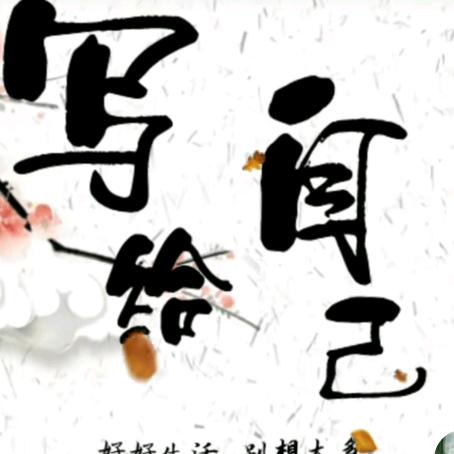 写给
自己
好好生活 别想太多